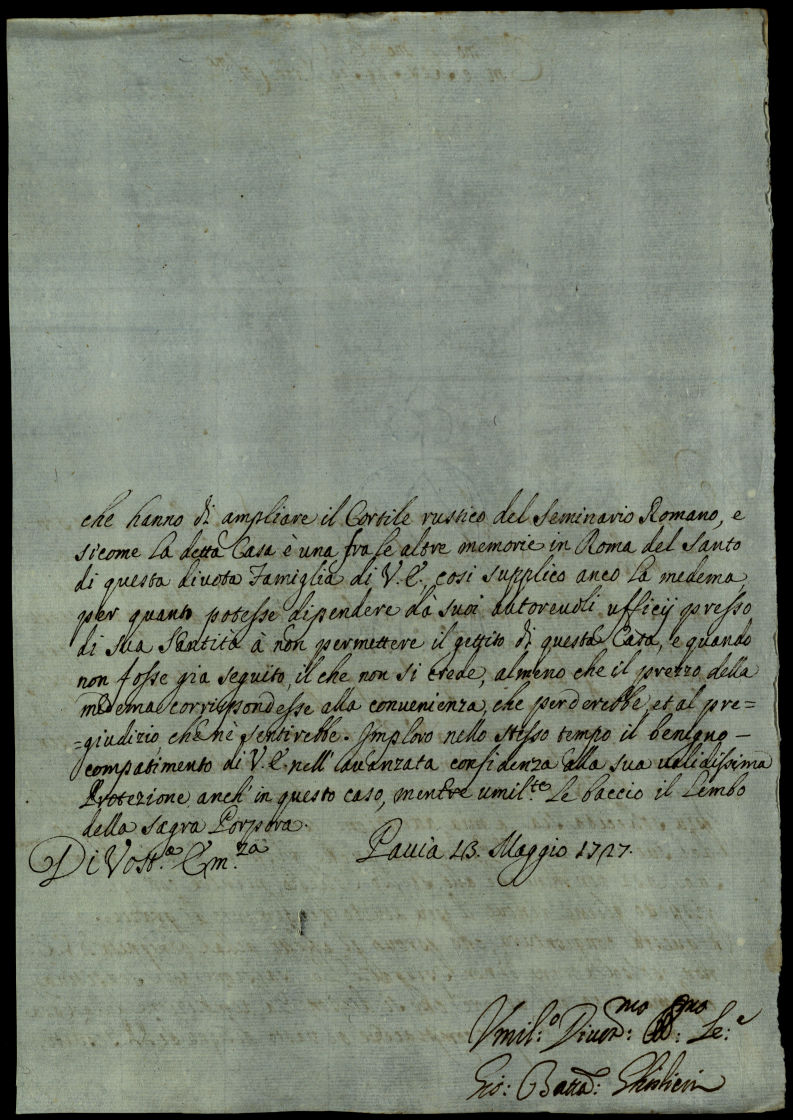 che hanno di ampliare il Cortile rustico del Seminario Romano, e
sicome la detta Casa è una fra le altre memorie in Roma del Santo
di questa divota Famiglia di V. E. così supplico anco la medema,
per quanto potesse dipendere dà suoi autorevoli ufficij presso
di sua Santità à non permettere il gettito di questa Casa, e quando
non fosse gia seguito, il che non si crede, almeno che il prezzo della
medema corrispondesse alla convenienza, che perderebbe, et al pre=
=giudizio, che nè sentirebbe. Imploro nello stesso tempo il benigno
compatimento di V. E. nell'avanzata confidenza alla sua validissima
Protezione anch'in questo caso, mentre umil.te Le baccio il Lembo
della sagra Porpora.
Di Vost.a Em.za Pavia 13. Maggio 1727.
Vmil:o Divot:mo
Gio: Batta: Ghislieri